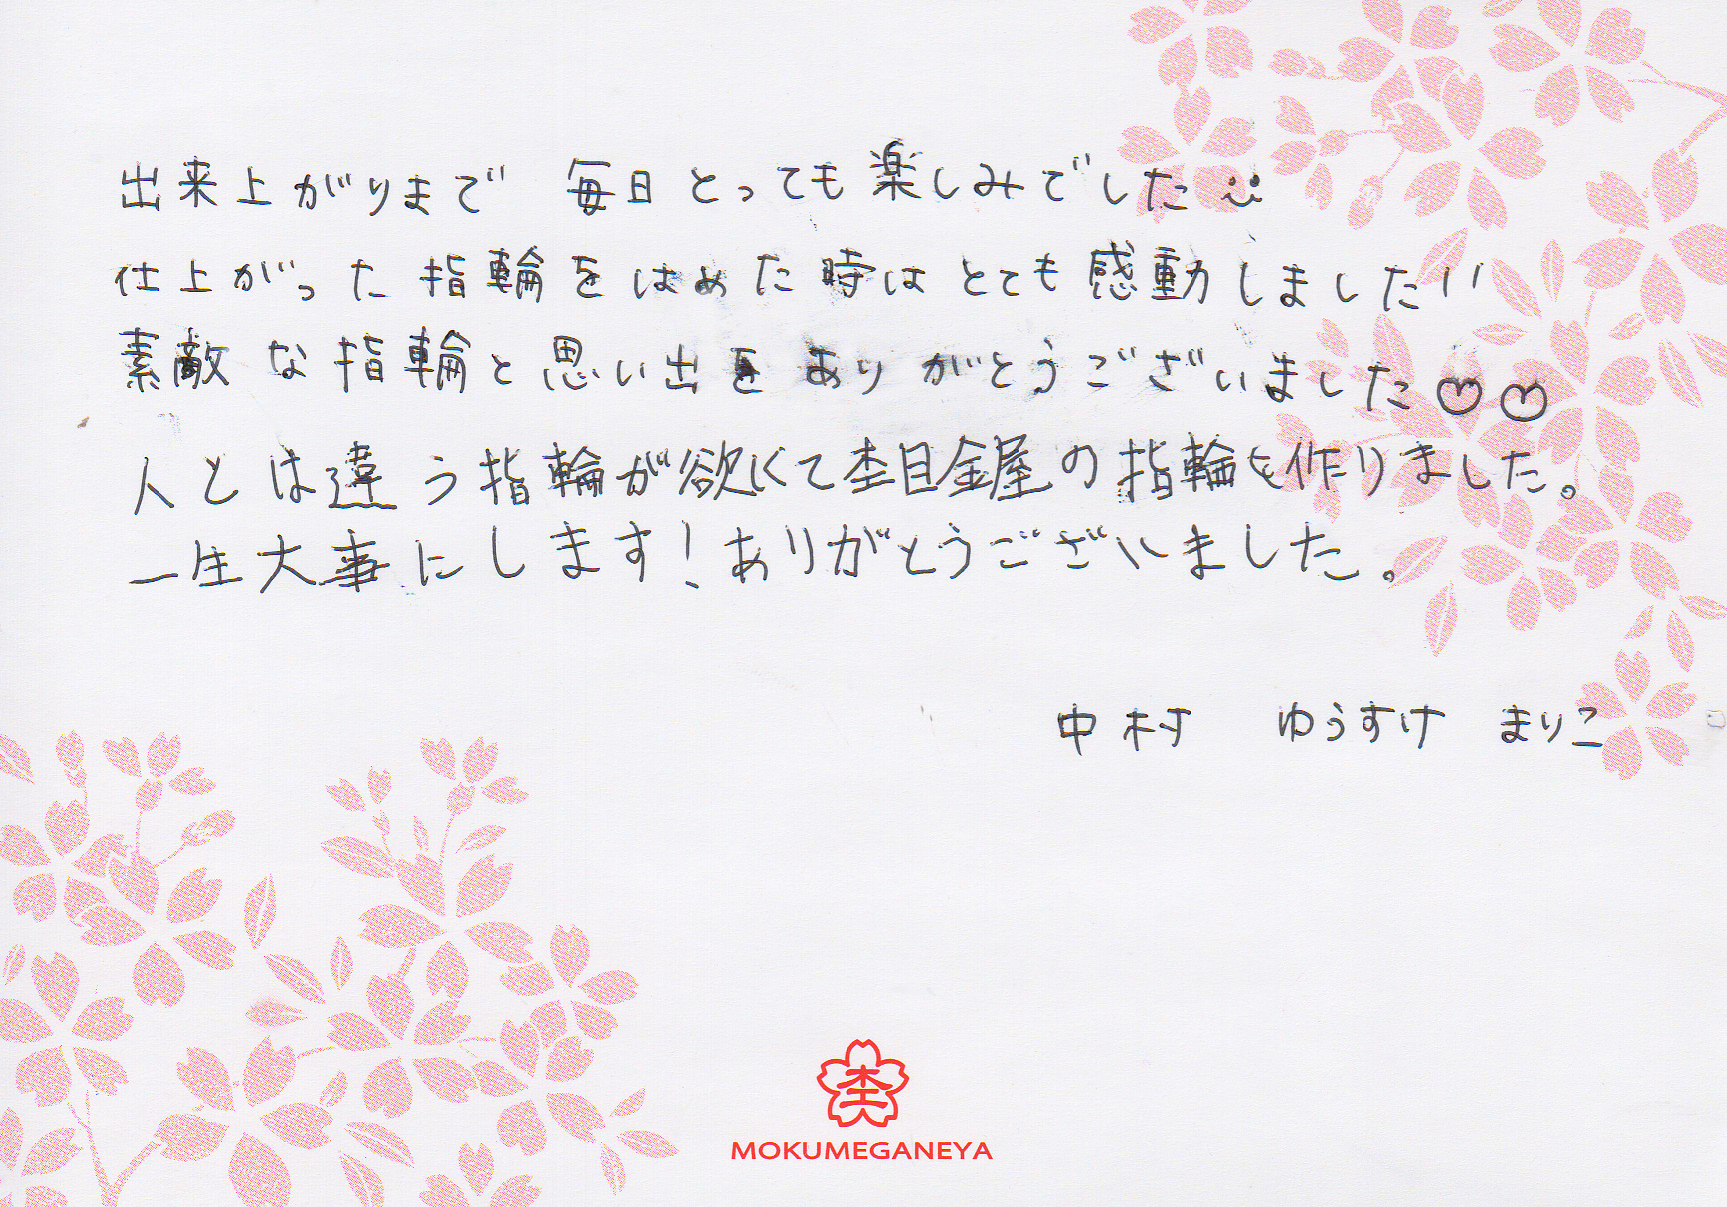 出来上がりまで 毎日とっても楽しみでした
仕上がった指輪をはめた時はとても感動しました!!
素敵な指輪と思い出をありがとうございました♡♡
人とは違う指輪が欲くて杢目金屋の指輪を作りました。
一生大事にします!ありがとうございました。
中村 ゆうすけ まりこ
杢
MOKUMEGANEYA